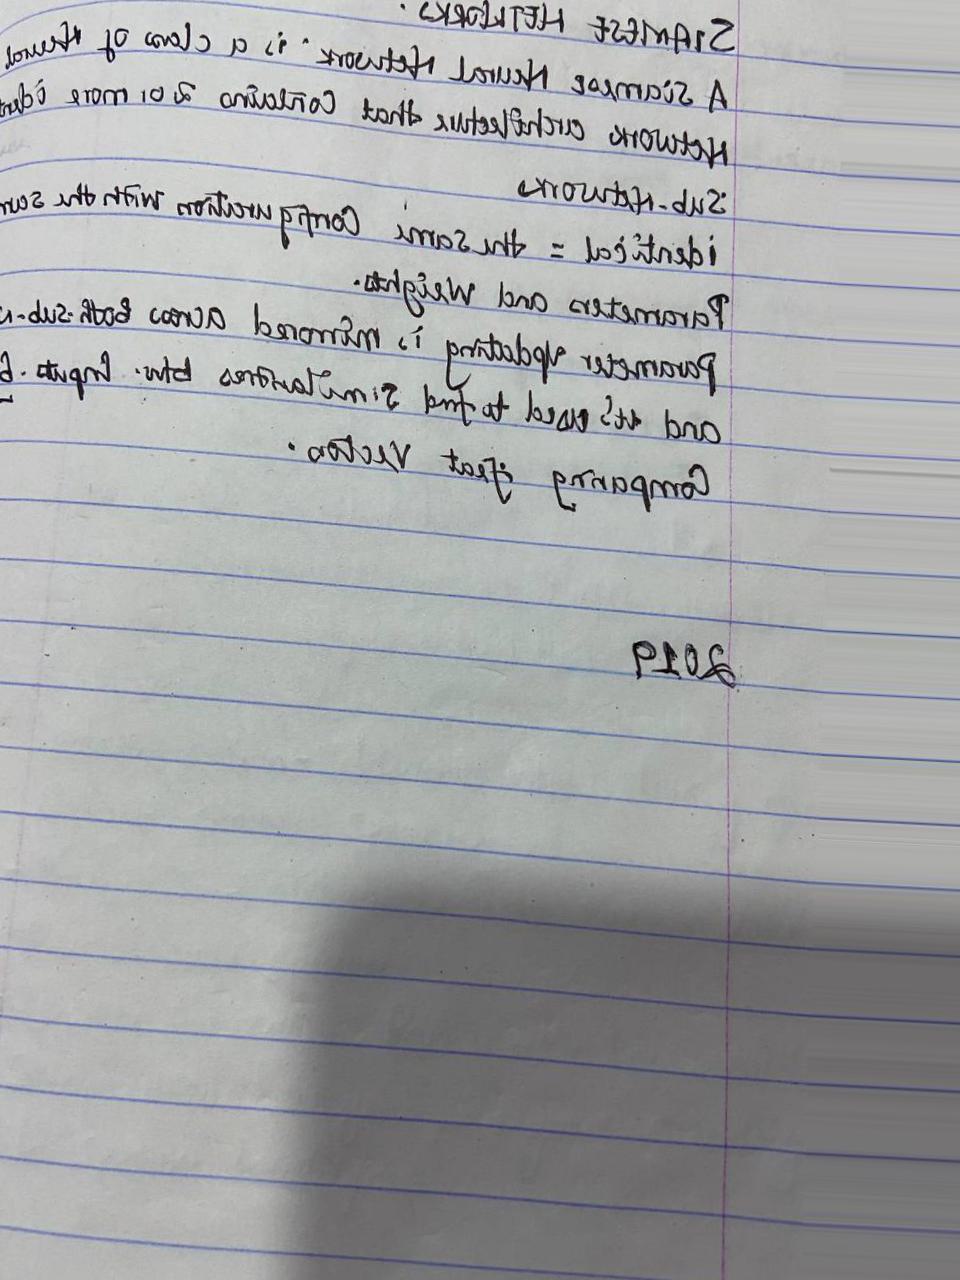 SIAMESE NETWORKS.
A Siamese Neural Network. is a class of Neural
Network architecture that Contains 2 or more ident
Sub-Networks
identical = the same Configuration with the same
Parameters and Weights.
Parameter updating is mirrored across both sub-n
and it's used to find Similarities btw. Inputs. by
Comparing feat Vectors.
2019